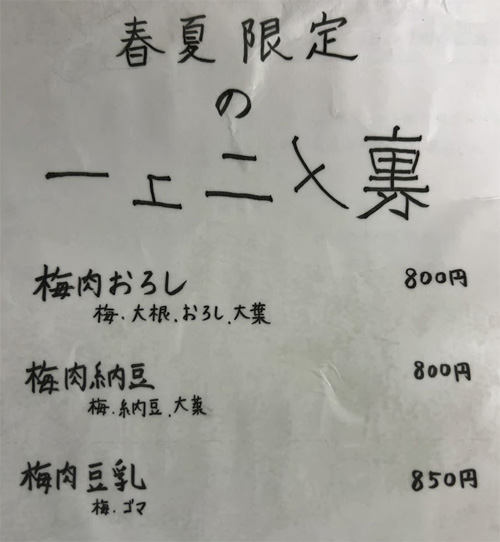 春夏限定
の
裏メニュー
梅肉おろし 800円
梅.大根.おろし.大葉
梅肉納豆 800円
梅.納豆.大葉
梅肉豆乳 850円
梅.ゴマ